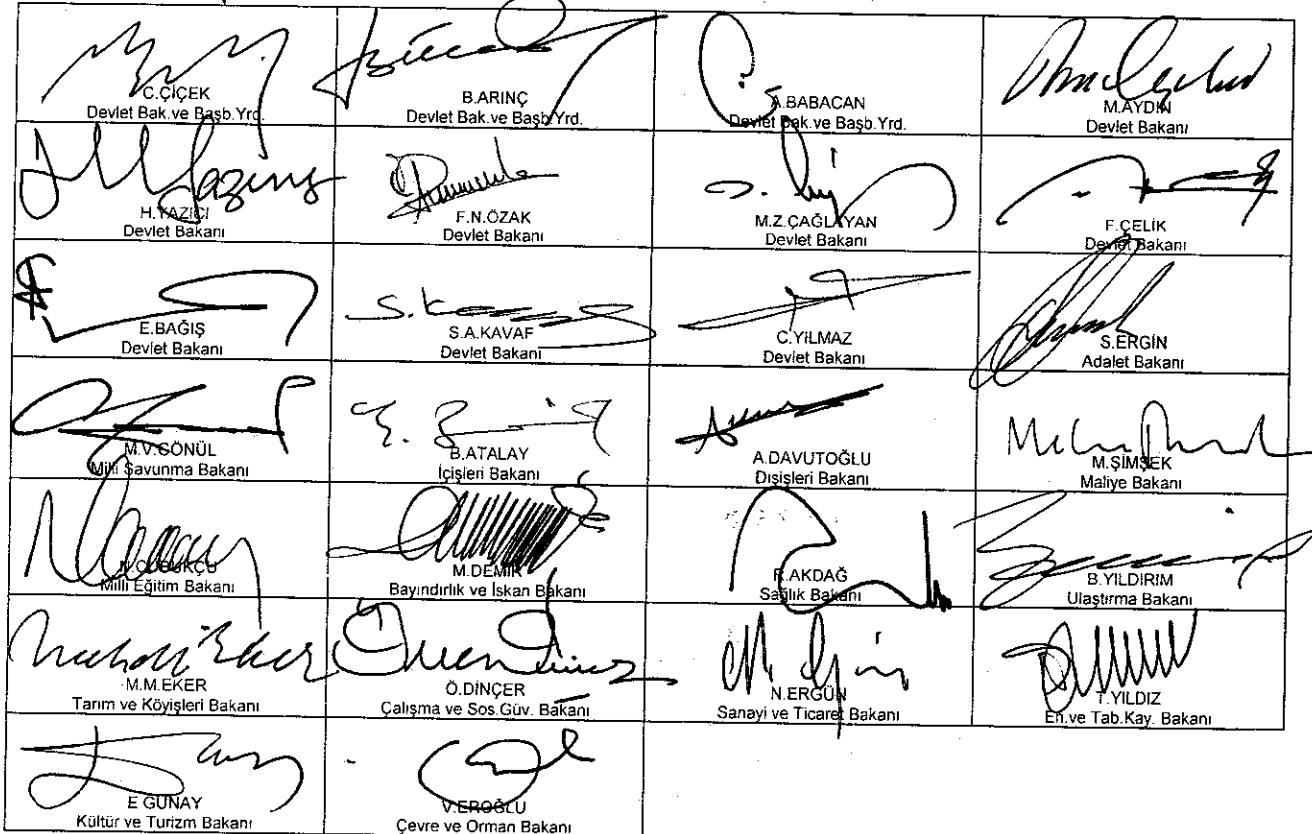 C.ÇİÇEK
Devlet Bak.ve Başb.Yrd.
B.ARINÇ
Devlet Bak.ve Başb.Yrd.
A.BABACAN
Devlet Bak.ve Başb.Yrd.
M.AYDIN
Devlet Bakanı
H.YAZICI
Devlet Bakanı
F.N.ÖZAK
Devlet Bakanı
M.Z.ÇAĞLAYAN
Devlet Bakanı
F.ÇELİK
Devlet Bakanı
E.BAĞIŞ
Devlet Bakanı
S.A.KAVAF
Devlet Bakanı
C.YILMAZ
Devlet Bakanı
S.ERGİN
Adalet Bakanı
M.V.GÖNÜL
Milli Savunma Bakanı
B.ATALAY
İçişleri Bakanı
A.DAVUTOĞLU
Dışişleri Bakanı
M.ŞİMŞEK
Maliye Bakanı
N.ÇUBUKÇU
Milli Eğitim Bakanı
M.DEMİR
Bayındırlık ve İskan Bakanı
R.AKDAĞ
Sağlık Bakanı
B.YILDIRIM
Ulaştırma Bakanı
M.M.EKER
Tarım ve Köyişleri Bakanı
Ö.DİNÇER
Çalışma ve Sos.Güv. Bakanı
N.ERGÜN
Sanayi ve Ticaret Bakanı
T.YILDIZ
En.ve Tab.Kay. Bakanı
E GÜNAY
Kültür ve Turizm Bakanı
V.EROĞLU
Çevre ve Orman Bakanı